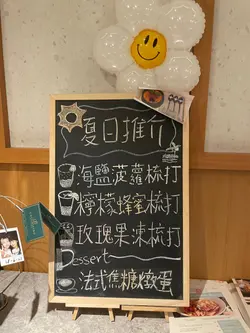 夏日推介
海鹽菠蘿梳打
檸檬蜂蜜梳打
玫瑰果凍梳打
Dessert
法式焦糖燉蛋